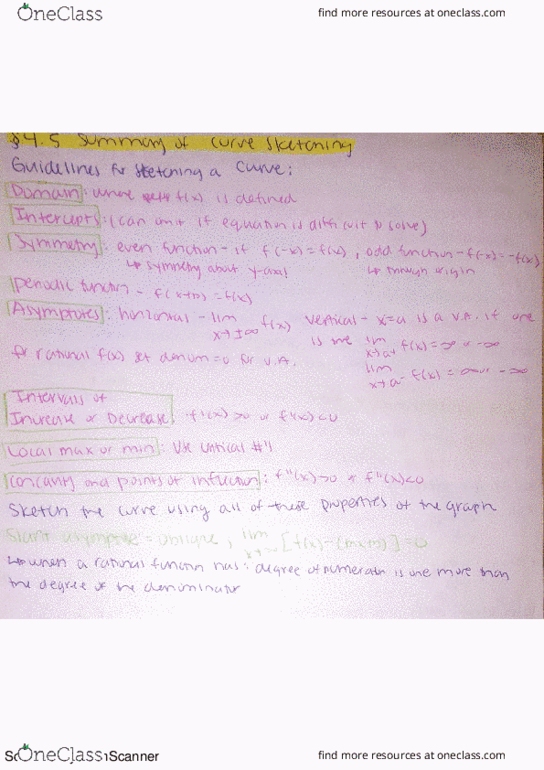 OneClass find more resources at oneclass.com
§4.5 Summary of curve sketching
Guidelines for sketching a curve:
Domain: where f(x) is defined
Intercepts: (can omit if equation is difficult to solve)
Symmetry: even function - if f(-x)=f(x), odd function - f(-x)=-f(x)
↳ symmetry about y-axis ↳ through origin
periodic function - f(x+p)=f(x)
Asymptotes: horizontal - lim x→±∞ f(x) vertical - x=a is a V.A. if one
is true lim x→a+ f(x)=∞ or -∞
for rational f(x) set denom=0 for V.A.
lim x→a- f(x)=∞ or -∞
Intervals of
Increase or Decrease: f'(x)>0 or f'(x)<0
Local max or min: Use critical #'s
Concavity and points of inflection: f"(x)>0 or f"(x)<0
Sketch the curve using all of these properties of the graph
Slant asymptote = oblique, lim [f(x)-(mx+b)]=0
↳ when a rational function has: degree of numerator is one more than
the degree of the denominator
OneClass Scanner find more resources at oneclass.com